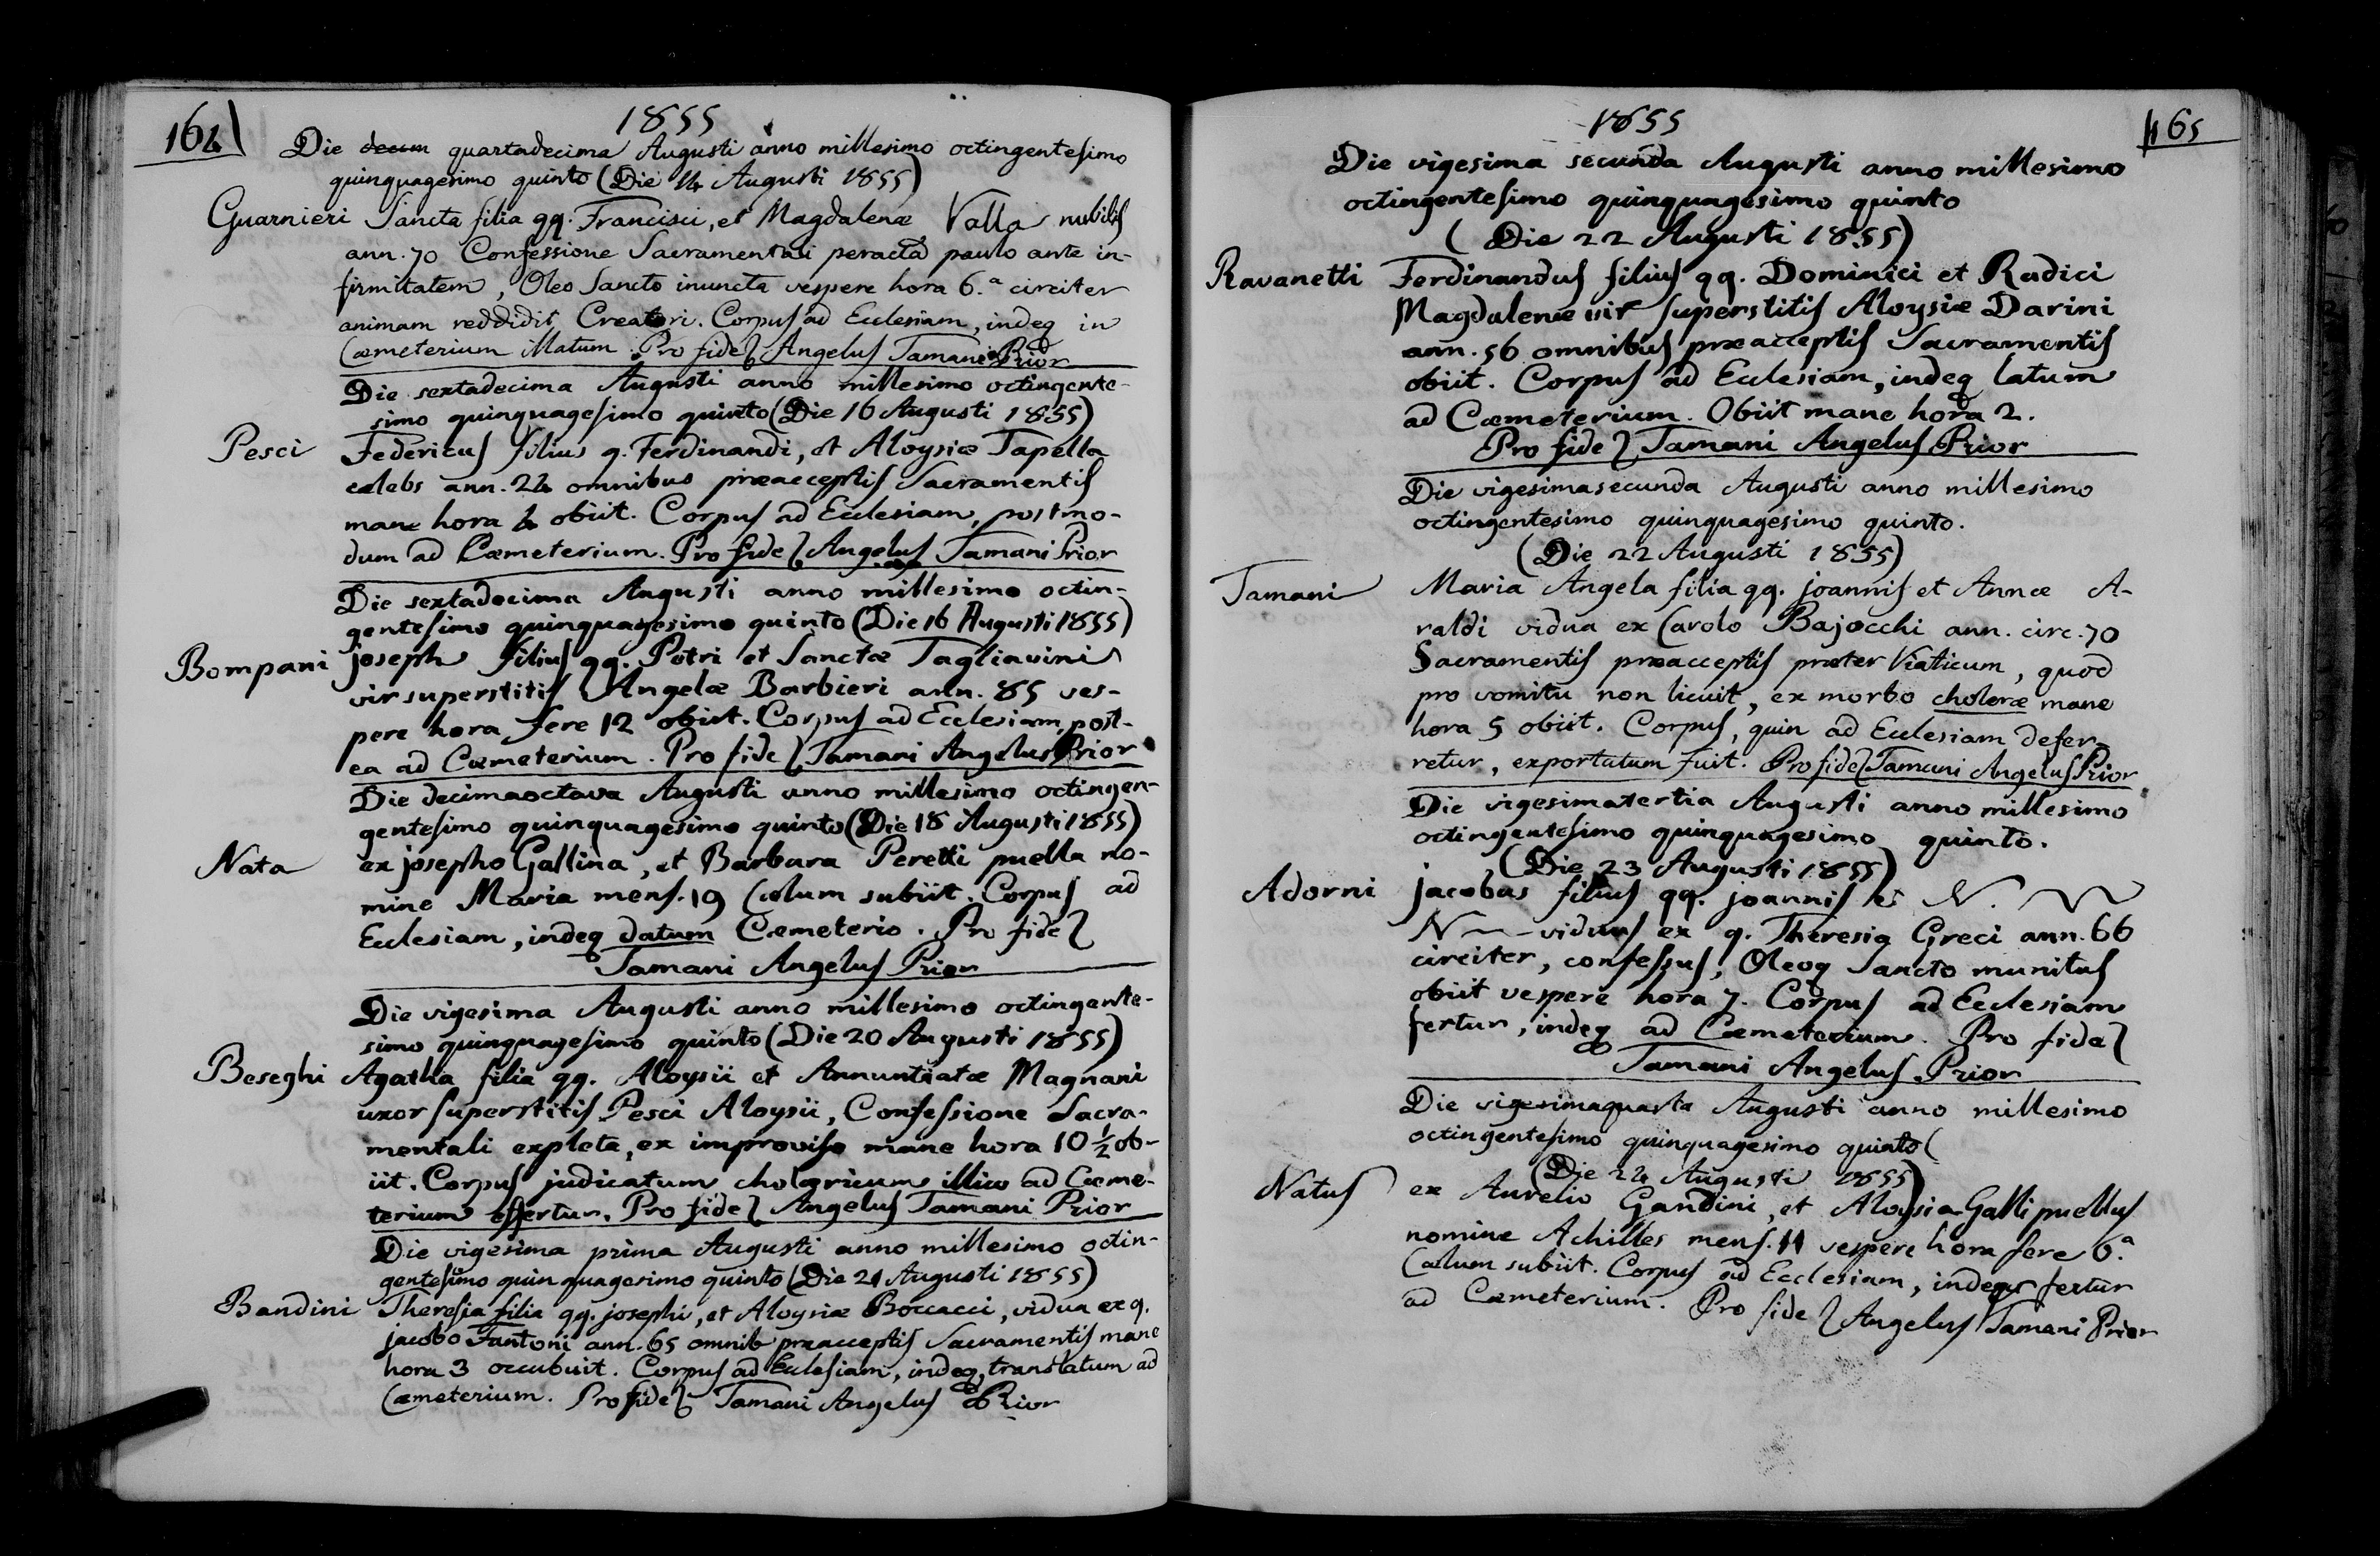 164
1855
Die decem quartadecima Augusti anno millesimo octingentesimo
quinquagesimo quinto (Die 14 Augusti 1855)
Guarnieri Sancta filia qq. Francisci, et Magdalenæ Valla nubilis
ann. 70 Confessione Sacramentali peracta paulo ante in-
firmitatem, Oleo Sancto inuncta vespere hora 6.a circiter
animam reddidit Creatori. Corpus ad Ecclesiam, indeq in
Cæmeterium illatum. Pro fide Angelus Tamani Prior
Die sextadecima Augusti anno millesimo octingente-
simo quinquagesimo quinto (Die 16 Augusti 1855)
Pesci Federicus filius q. Ferdinandi, et Aloysiæ Tapella
celebs ann. 24 omnibus præacceptis Sacramentis
mane hora 4 obiit. Corpus ad Ecclesiam, postmo-
dum ad Cæmeterium. Pro fide Angelus Tamani Prior
Die sextadecima Augusti anno millesimo octin-
gentesimo quinquagesimo quinto (Die 16 Augusti 1855)
Bompani joseph filius qq. Petri et Sanctæ Tagliavini
vir superstitis Angelæ Barbieri ann. 85 ves-
pere hora fere 12 obiit. Corpus ad Ecclesiam, post-
ea ad Cæmeterium. Pro fide Tamani Angelus Prior
Die decimaoctava Augusti anno millesimo octingen-
gentesimo quinquagesimo quinto (Die 18 Augusti 1855)
Nata ex josepho Gallina, et Barbara Peretti puella no-
mine Maria mens. 19 Cælum subiit. Corpus ad
Ecclesiam, indeq datum Cæmeterio. Pro fide
Tamani Angelus Prior
Die vigesima Augusti anno millesimo octingente-
simo quinquagesimo quinto (Die 20 Augusti 1855)
Beseghi Agatha filia qq. Aloysii et Annuntiatæ Magnani
uxor superstitis Pesci Aloysii, Confessione Sacra-
mentali expleta, ex improviso mane hora 10 1/2 ob-
iit. Corpus judicatum cholericum illico ad Cæme-
terium effertur. Pro fide Angelus Tamani Prior
Die vigesima prima Augusti anno millesimo octin-
gentesimo quinquagesimo quinto (Die 21 Augusti 1855)
Bandini Theresia filia qq. josephi, et Aloysiæ Boccacci, vidua ex q.
jacobo Fantoni ann. 65 omnib præacceptis Sacramentis mane
hora 3 occubuit. Corpus ad Ecclesiam, indeq, translatum ad
Cæmeterium. Pro fide Tamani Angelus Prior
165
1855
Die vigesima secunda Augusti anno millesimo
octingentesimo quinquagesimo quinto
(Die 22 Augusti 1855)
Ravanetti Ferdinandus filius qq. Dominici et Radici
Magdalenæ vir superstitis Aloysiæ Darini
ann. 56 omnibus præacceptis Sacramentis
obiit. Corpus ad Ecclesiam, indeq latum
ad Cæmeterium. Obiit mane hora 2.
Pro fide Tamani Angelus Prior
Die vigesimasecunda Augusti anno millesimo
octingentesimo quinquagesimo quinto.
(Die 22 Augusti 1855)
Tamani Maria Angela filia qq. joannis et Annæ A-
raldi vidua ex Carolo Bajocchi ann. circ. 70
Sacramentis præacceptis præter Viaticum, quod
pro vomitu non licuit, ex morbo choleræ mane
hora 5 obiit. Corpus, quin ad Ecclesiam defer-
retur, exportatum fuit. Pro fide Tamani Angelus Prior
Die vigesimatertia Augusti anno millesimo
octingentesimo quinquagesimo quinto.
(Die 23 Augusti 1855)
Adorni jacobus filius qq. joannis et N.
N viduus ex q. Theresia Greci ann. 66
circiter, confessus, Oleoq Sancto munitus
obiit vespere hora 7. Corpus ad Ecclesiam
fertur, indeq ad Cæmeterium. Pro fide
Tamani Angelus Prior
Die vigesimaquarta Augusti anno millesimo
octingentesimo quinquagesimo quinto (
(Die 24 Augusti 1855)
Natus ex Aurelio Gandini, et Aloysia Galli puellus
nomine Achilles mens. 11 vespere hora fere 6.a
Cælum subiit. Corpus ad Ecclesiam, indeq fertur
ad Cæmeterium. Pro fide Angelus Tamani Prior